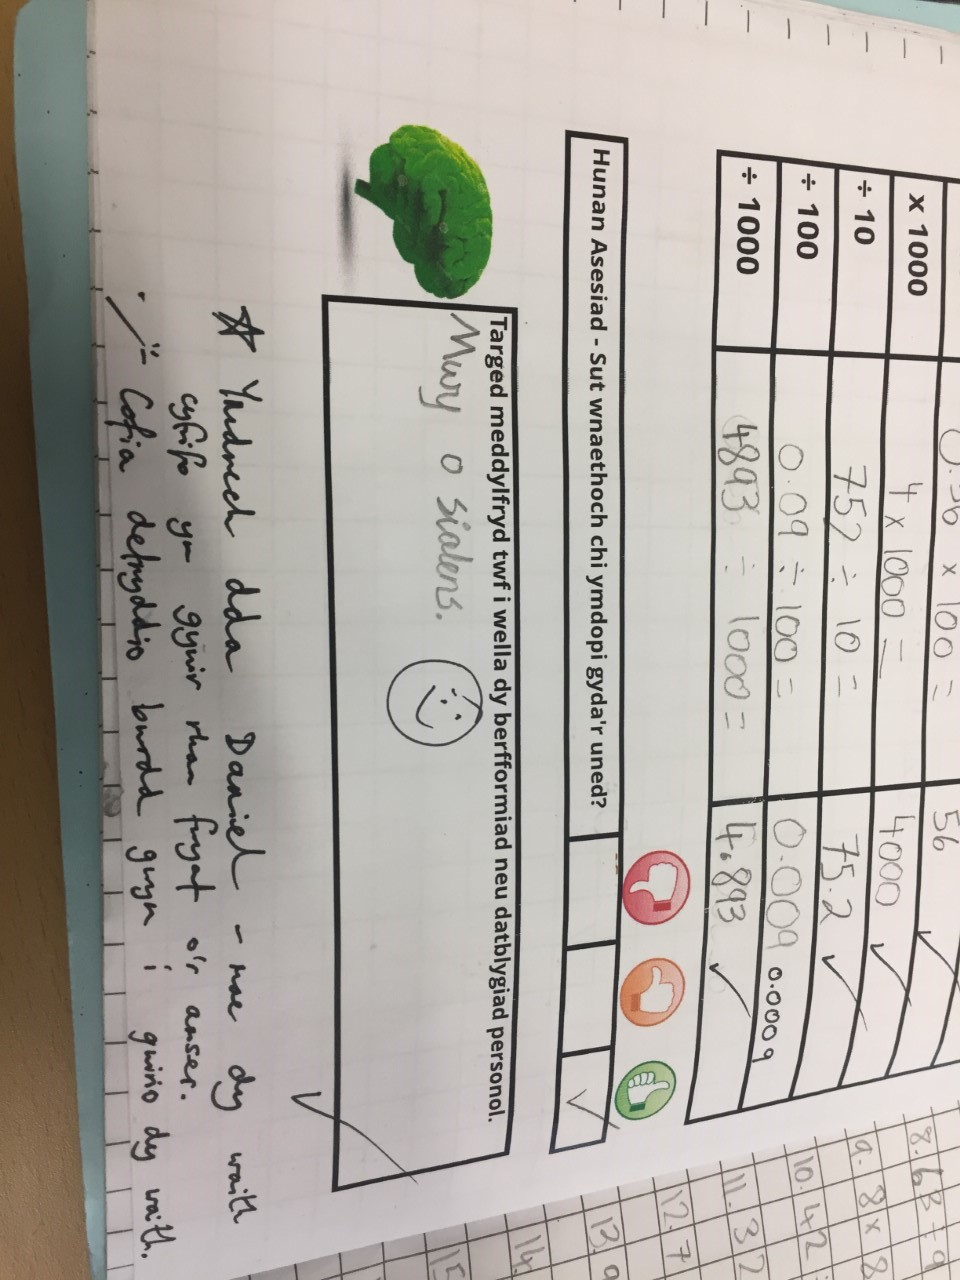 0.56 x 100 = 56
x 1000 4 x 1000 = 4000
÷ 10 752 ÷ 10 = 75.2
÷ 100 0.09 ÷ 100 = 0.009 0.0009
÷ 1000 4893 ÷ 1000 = 4.893
Hunan Asesiad - Sut wnaethoch chi ymdopi gyda'r uned?
Targed meddylfryd twf i wella dy berfformiad neu datblygiad personol.
Mwy o sialens.
Ymdrech dda Daniel - mae dy waith
cyfrifo yn gywir rhan fwyaf o'r amser.
Cofia defnyddio bwrdd gwyn i gwirio dy waith.
8. 63 ÷ 9
9. 8 x 8
10. 42
11. 32
12. 7
13. 9
14.
15